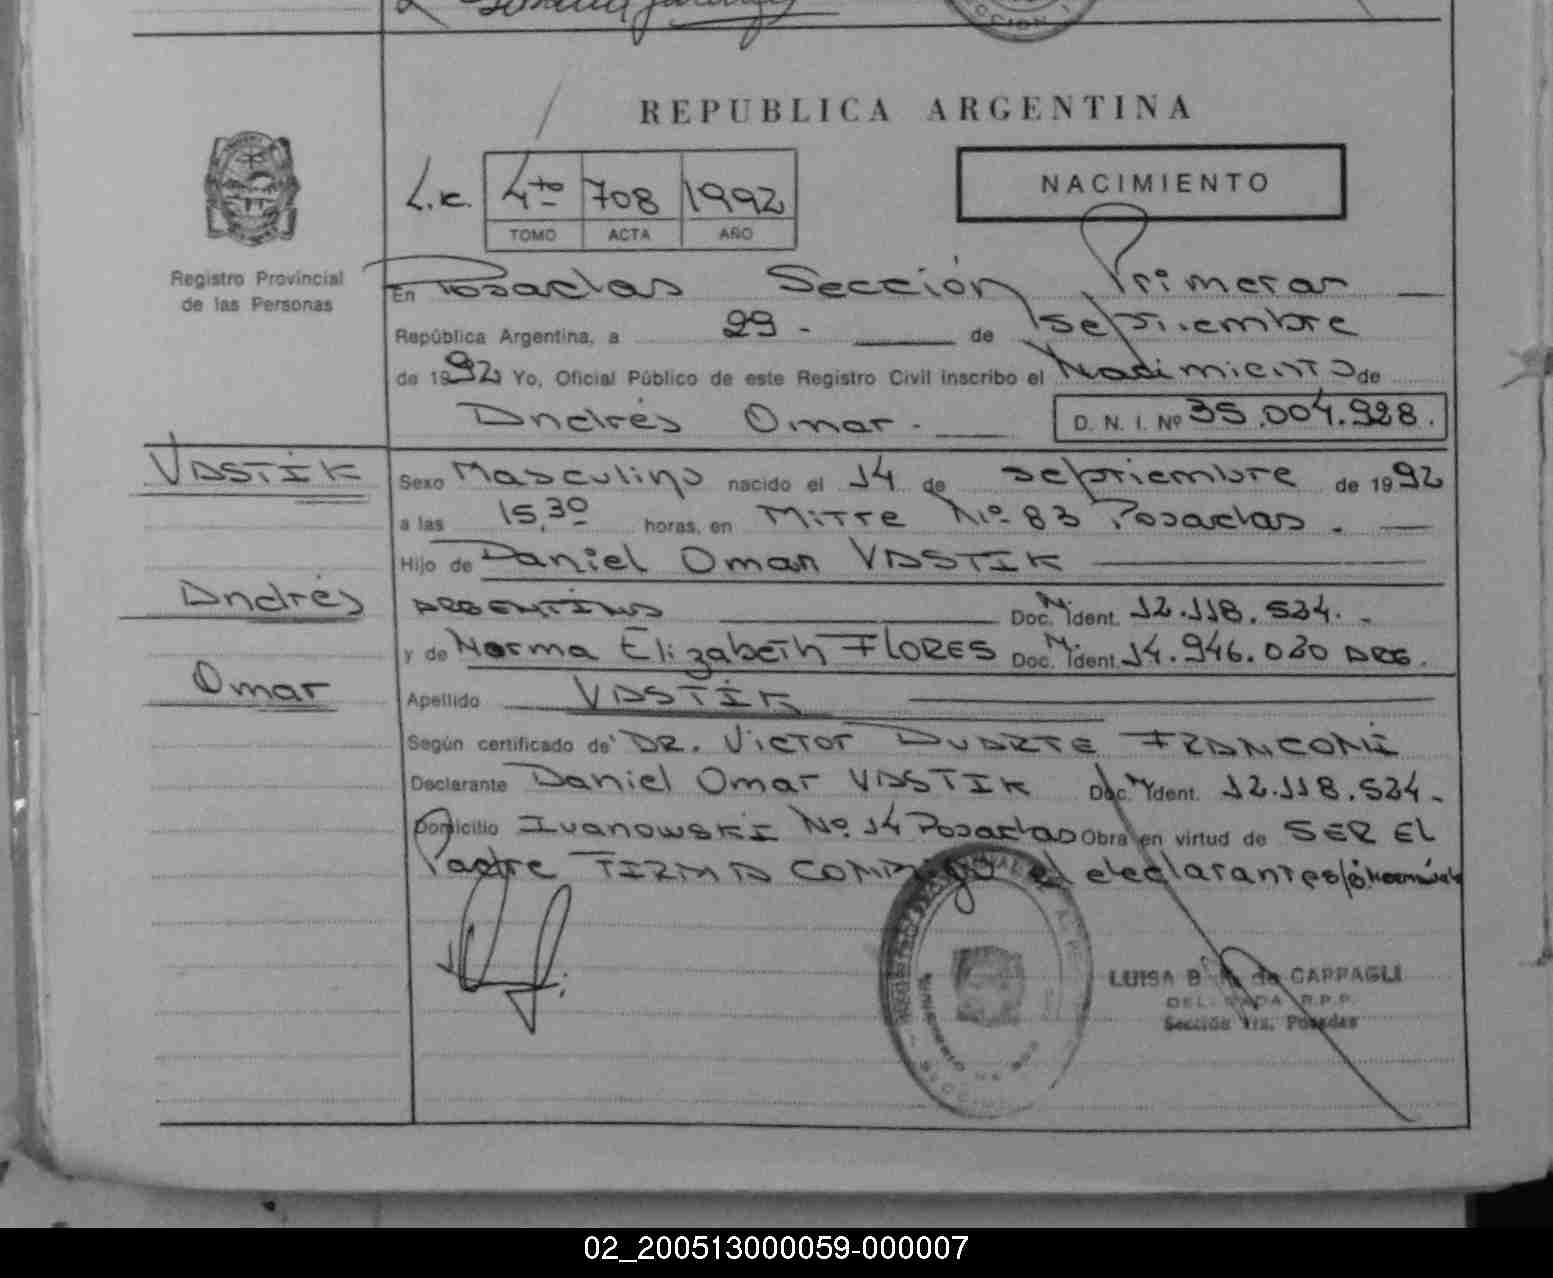 REPUBLICA ARGENTINA
L.c. 4to 708 1992
TOMO ACTA AÑO
NACIMIENTO
Registro Provincial
de las Personas
En Posadas Sección Primera
República Argentina, a 29 - de septiembre
de 1992 Yo, Oficial Público de este Registro Civil inscribo el Nacimiento de
Andrés Omar. D. N. I. Nº 35.004.928.
VASTIK
Andrés
Omar
Sexo Masculino nacido el 14 de septiembre de 1992
a las 15,30 horas, en Mitre Nº 83 Posadas.
Hijo de Daniel Omar VASTIK
ARGENTINO Doc. M. Ident. 12.118.534.-
y de Norma Elizabeth FLORES Doc. M. Ident. 14.946.030 ARG.
Apellido VASTIK
Según certificado de DR. Victor DUARTE FRANCONI
Declarante Daniel Omar VASTIK Doc. M. Ident. 12.118.534.-
Domicilio Ivanowski Nº 14 Posadas Obra en virtud de SER El
Padre FIRMA CONMigo el declarante
LUISA B de CAPPAGLI
DELEGADA R.P.P.
Sección 1ra. Posadas
02_200513000059-000007